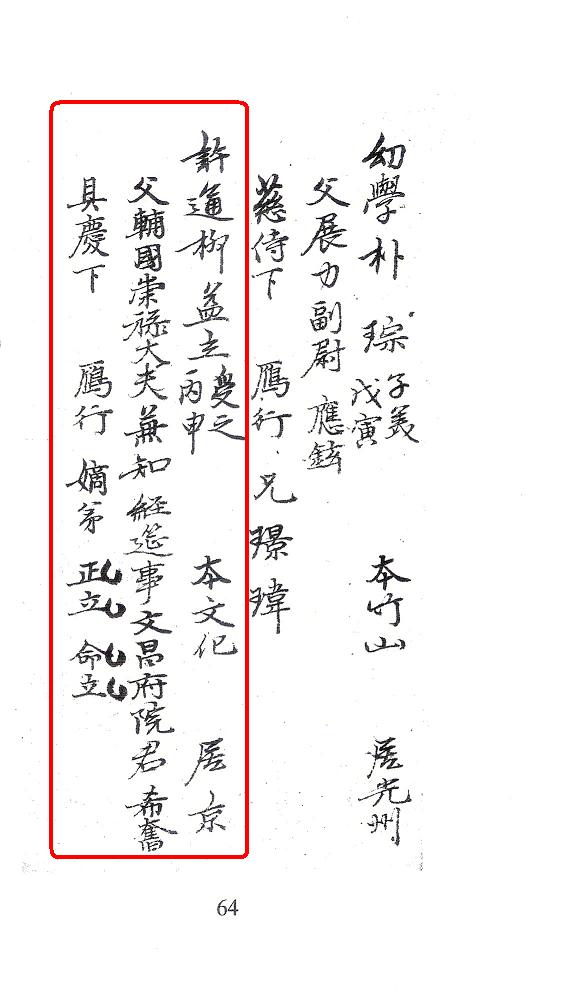 幼學朴 琮 子美 戊寅 本竹山 居光州
父展力副尉 應鉉
慈侍下 鴈行 兄 璟 瑋
許通柳益立 之 丙申 本文化 居京
父輔國崇祿大夫兼知經筵事文昌府院君 希奮
具慶下 鴈行 嫡弟 正立 命立
64